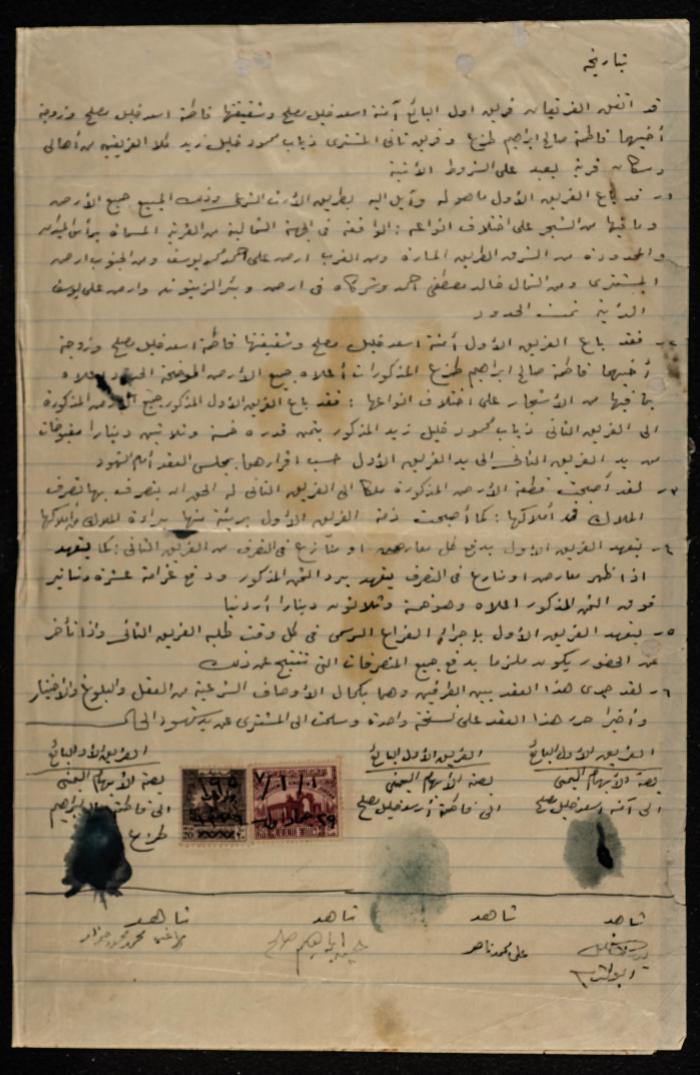 بتاريخه
قد اتفق الفريقان فريق اول البائع آمنة اسعد خليل مصلح وشقيقتها فاطمة اسعد خليل مصلح وزوجة
أخيهما فاطمة صالح ابراهيم طزع وفريق ثاني المشتري ذياب محمود خليل زيد كلا الفريقين من أهالي
وسكان قرية بعبد على الشروط الآتية
١- قد باع الفريق الأول ما هو له وآيل اليه بطريق الأرث الشرعي وذلك المبيع جميع الأرض
وما فيها من الشجر على اختلاف انواعه : الواقعة في الجهة الشمالية من القرية المسماة
والمحدودة من الشرق الطريق المارة ومن الغرب ارض علي يوسف ومن الجنوب ارض
المشتري ومن الشمال خالد مصطفى حمد وشركاه في ارض وبئر الزيتونه وارض علي يوسف
تمت الحدود
٢- فقد باع الفريق الأول آمنة اسعد خليل مصلح وشقيقتها فاطمة اسعد خليل مصلح وزوجة
أخيهما فاطمة صالح ابراهيم طزع المذكورات أعلاه جميع الأرض الموضحة الحدود أعلاه
بما فيها من الأشجار على اختلاف انواعها : فقد باع الفريق الأول المذكور جميع الأرض المذكورة
الى الفريق الثاني ذياب محمود خليل زيد المذكور بثمن قدره خمسة وثلاثين دينارا مقبوضات
من يد الفريق الثاني الى يد الفريق الأول حسب اقرارهما بمجلس العقد أمام الشهود
٣- لقد أصبحت قطعة الأرض المذكورة ملكا الى الفريق الثاني له الحق ان يتصرف بها تصرف
الملاك في أملاكها : كما أصبحت ذمة الفريق الأول بريئة منها
٤- يتعهد الفريق الأول بدفع كل معارض او منازع في التصرف من الفريق الثاني : كما يتعهد
اذا ظهر معارض او نازع في التصرف يتعهد برد الثمن المذكور ودفع غرامة عشرة دنانير
فوق الثمن المذكور اعلاه وهو خمسة وثلاثون دينارا أردنيا
٥- يتعهد الفريق الأول بإجراء الفراغ الرسمي في كل وقت طلبه الفريق الثاني واذا تأخر
عن الحضور يكون ملزما بدفع جميع المصروفات التي تنتج عن ذلك
٦- لقد جرى هذا العقد بين الطرفين وهما بكمال الأوصاف الشرعية من العقل والبلوغ والأختيار
وأخيرا حرر هذا العقد على نسخة واحدة وسلمت الى المشتري عن يد شهود الحال
الفريق الأول البائع
بصمة الأبهام اليمنى
الى آمنة اسعد خليل مصلح
الفريق الأول البائع
بصمة الأبهام اليمنى
الى فاطمة أسعد خليل مصلح
الفريق الأول البائع
بصمة الأبهام اليمنى
الى فاطمة صالح ابراهيم
طزع
شاهد
شاهد
علي محمد ناصر
شاهد
ابراهيم صالح
شاهد
محمد